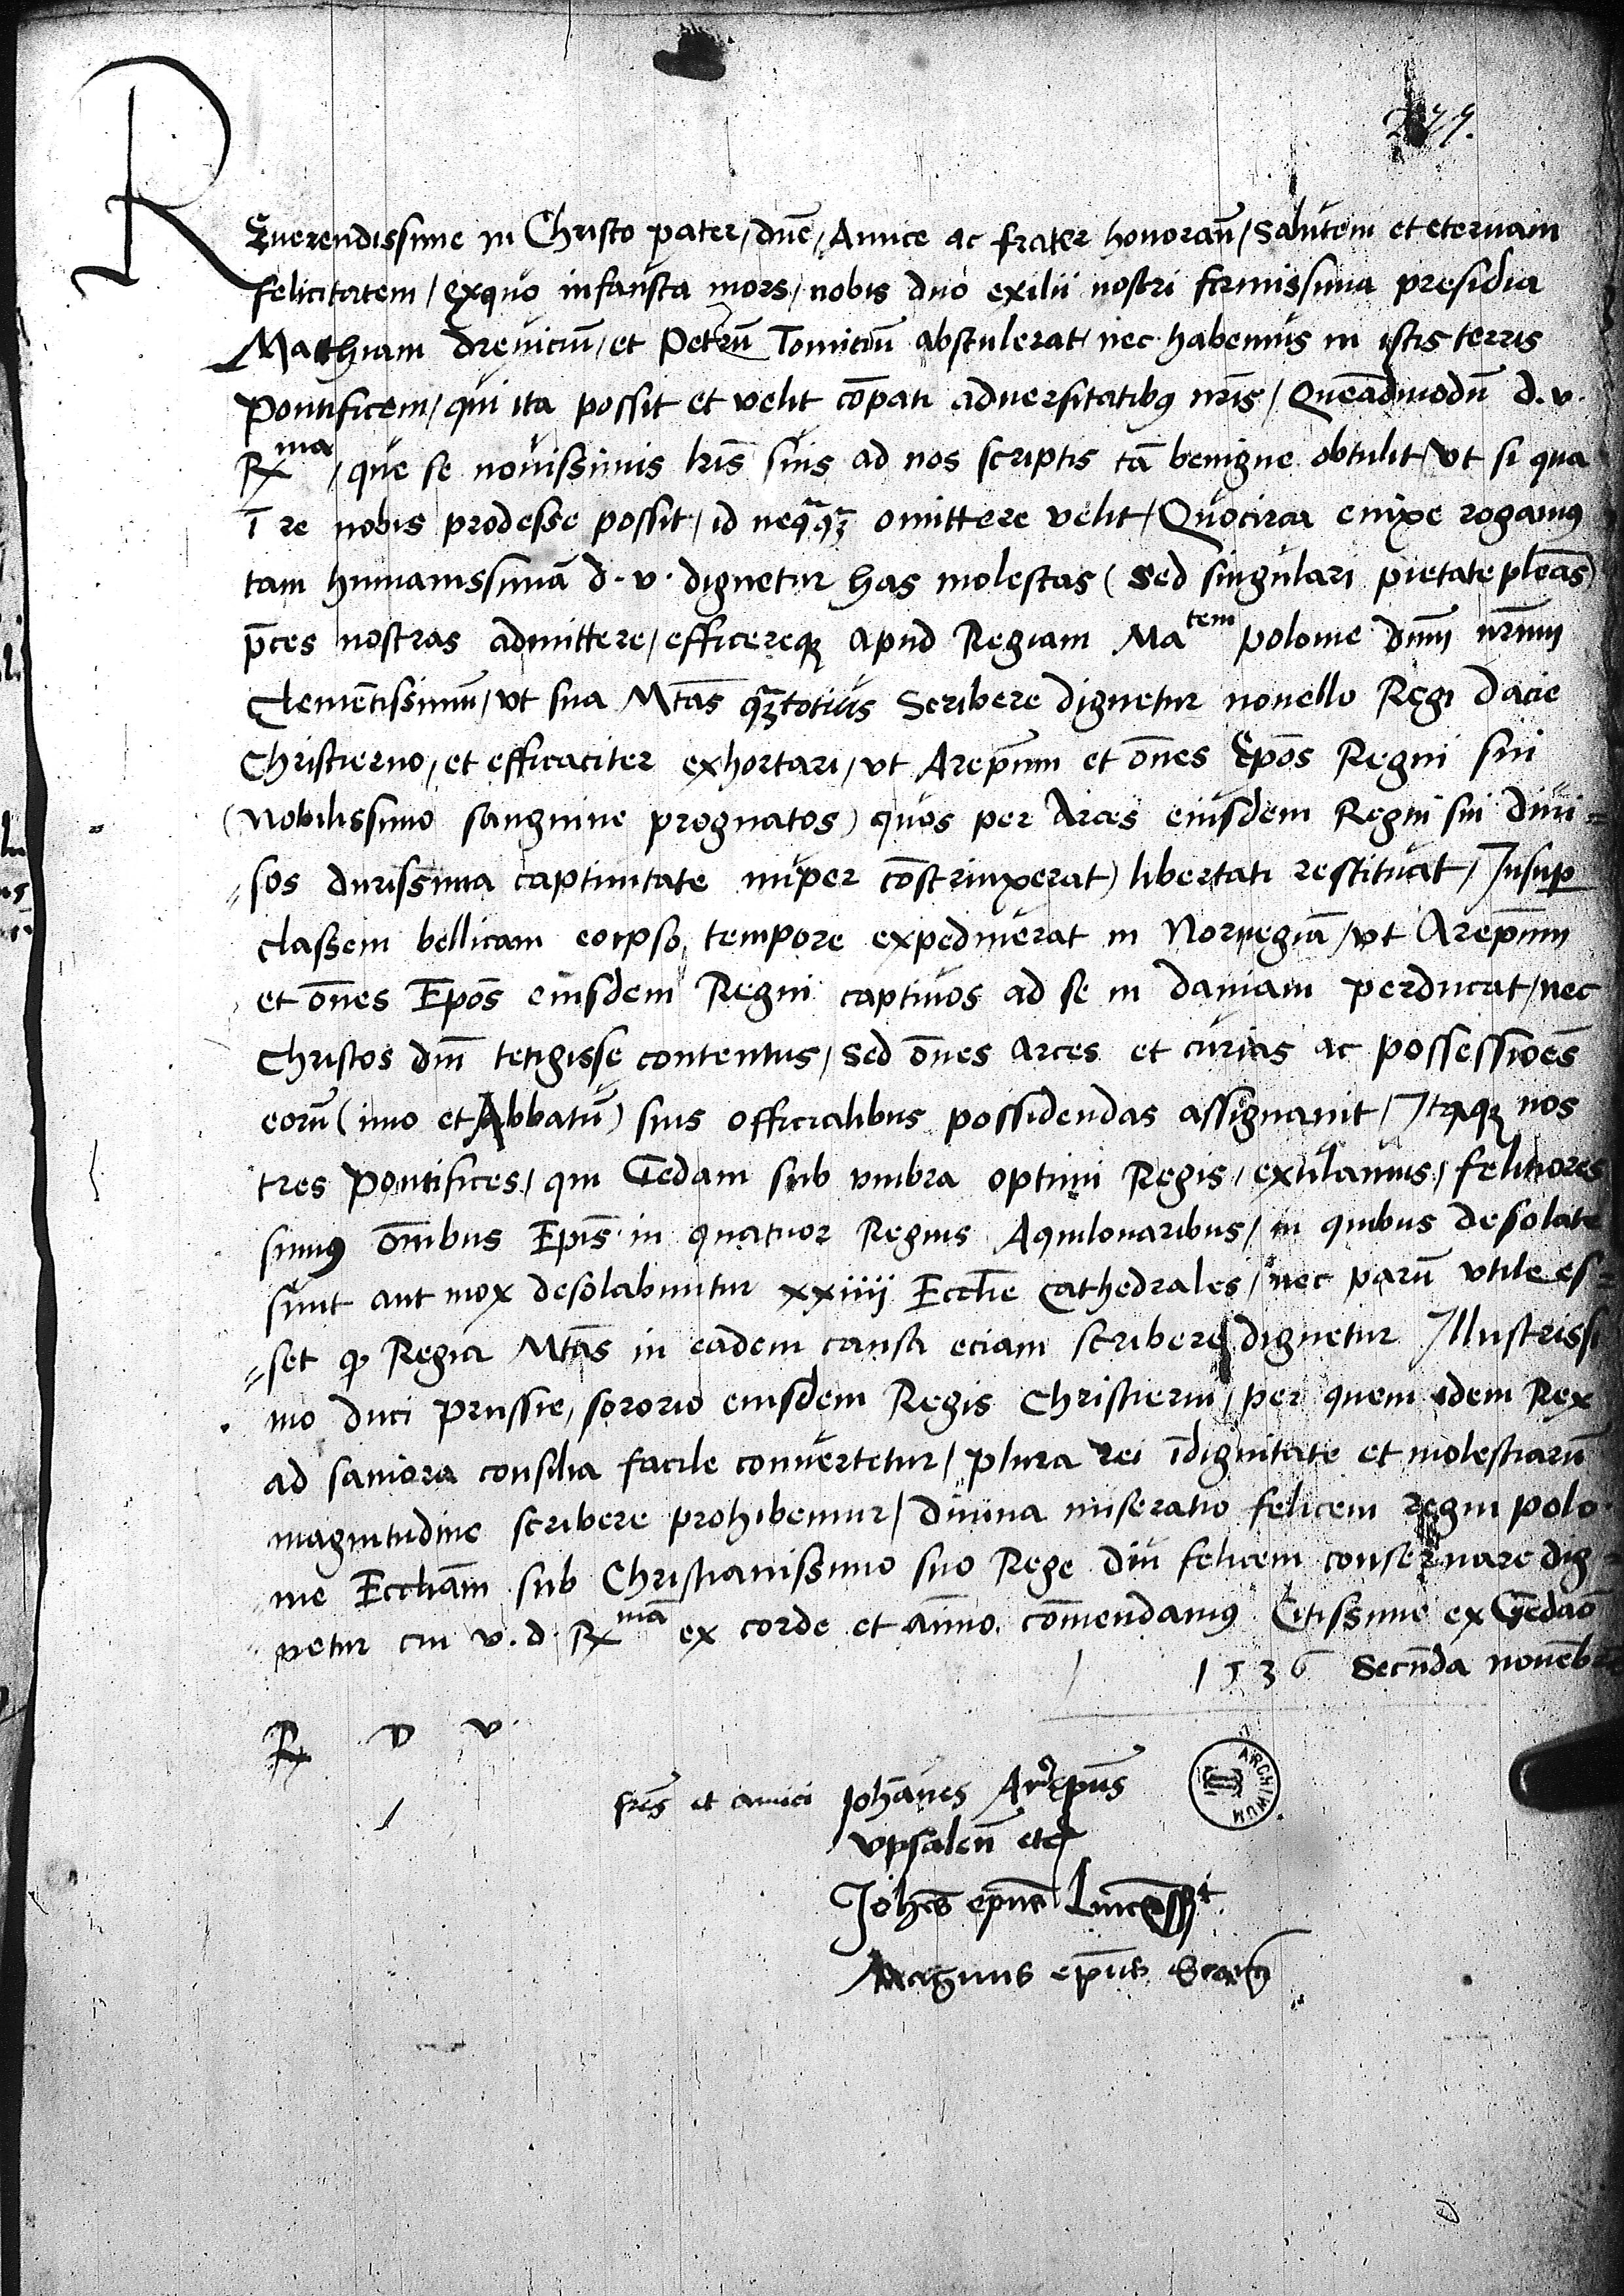 Reuerendissime in Christo pater / dn̄e / Amice ac frater honoran̄ / Salutem et eternam
felicitatem / exquo infausta mors / nobis duo exilii nostri firmissima presidia
Mathiam dreuiciū / et Petrū Tomiciū abstulerat / nec habemus in istis terris
Pontificem / qui ita possit et velit cōpati aduersitatibꝯ nr̄is / Queādmodū d. v.
Rx ma / que se nouissimis lr̄is suis ad nos scriptis tā benigne obtulit / vt si qua
ī re nobis prodesse possit / id neqꝗqꝫ omittere velit / Quocirca enixe rogamꝯ
tam humanissimā d. v. dignetur has molestas (sed singulari pietate plenas)
p̄ces nostras admittere / efficereqꝫ apud Regiam Ma tem polonie dnm̄ nr̄m
Clemētissimū / vt sua Mtās qꝫtotius Scribere dignetur nouello Regi dacie
Christierno / et efficaciter exhortari / vt Arep̄um et om̄es Ep̄os Regni sui
(Nobilissimo sanguine prognatos) quos per Arces eiusdem Regni sui diui=
=sos durissima captiuitate nuper cōstrinxerat) libertati restituat / Insup̱
classem bellicam eoipso tempore expediuerat in Noruegiā / vt Arep̄um
et om̄es Ep̄os eiusdem Regni captiuos ad se in daniam perducat / nec
Christos dn̄i tetigisse contentus / sed om̄es arces et curias ac possessiones
eorū (imo et Abbatū) suis officialibus possidendas assignauit / Itaqꝫ nos
tres Pontifices / qui Gedani sub vmbra optimi Regis / exulamus / feliciores
simꝯ om̄ibus Ep̄is in quatuor Regnis Aquilonaribus / in quibus desolate
sunt aut mox desolabuntur xxiiii Eccl̄ie Cathedrales / nec parū vtile es=
=set qꝫ Regia Mtās in eadem causa eciam scribere dignetur Illustrissi
mo duci prussie / sororio eiusdem Regis Christierni / per quem idem Rex
ad saniora consilia facile conuertetur / plura rei īdignitate et molestiarū
magnitudine scribere prohibemur / Diuina miseratio felicem regni polo
nie Eccl̄iam sub Christianissimo suo Rege diu felicem conseruare dig=
netur cui v. d. Rx mā ex corde et aīmo cōmendamꝯ Citissime ex Gedāo
1536 Secūda nouēb
Rx D V
fr̄es et amici Johānes Arep̄us
vpsaleñ etc
Joh̄es ep̄us Linceñ
Magnus ep̄us Scareñ
ARCHIWUM